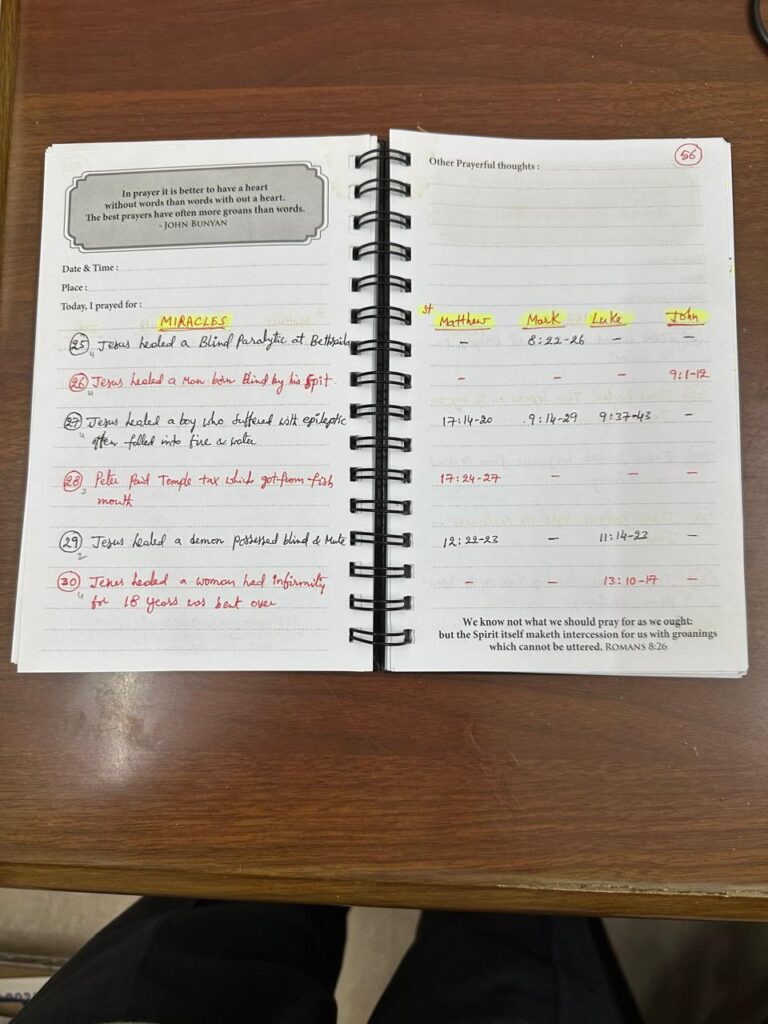 In prayer it is better to have a heart
without words than words with out a heart.
The best prayers have often more groans than words.
- JOHN BUNYAN
Date & Time :
Place :
Today, I prayed for :
MIRACLES
25 Jesus healed a Blind Paralytic at Bethsaida
4
26 Jesus healed a Man born Blind by his Spit.
4
27 Jesus healed a boy who suffered with epileptic
4 often falled into fire & water
28 Peter Paid Temple tax which got from fish
3 mouth
29 Jesus healed a demon possessed blind & Mute
2
30 Jesus healed a woman had infirmity
4 for 18 years was bent over
56
Other Prayerful thoughts :
St Matthew Mark Luke John
- 8:22-26 - -
- - - 9:1-12
17:14-20 9:14-29 9:37-43 -
17:24-27 - - -
12:22-23 - 11:14-23 -
- - 13:10-17 -
We know not what we should pray for as we ought:
but the Spirit itself maketh intercession for us with groanings
which cannot be uttered. ROMANS 8:26